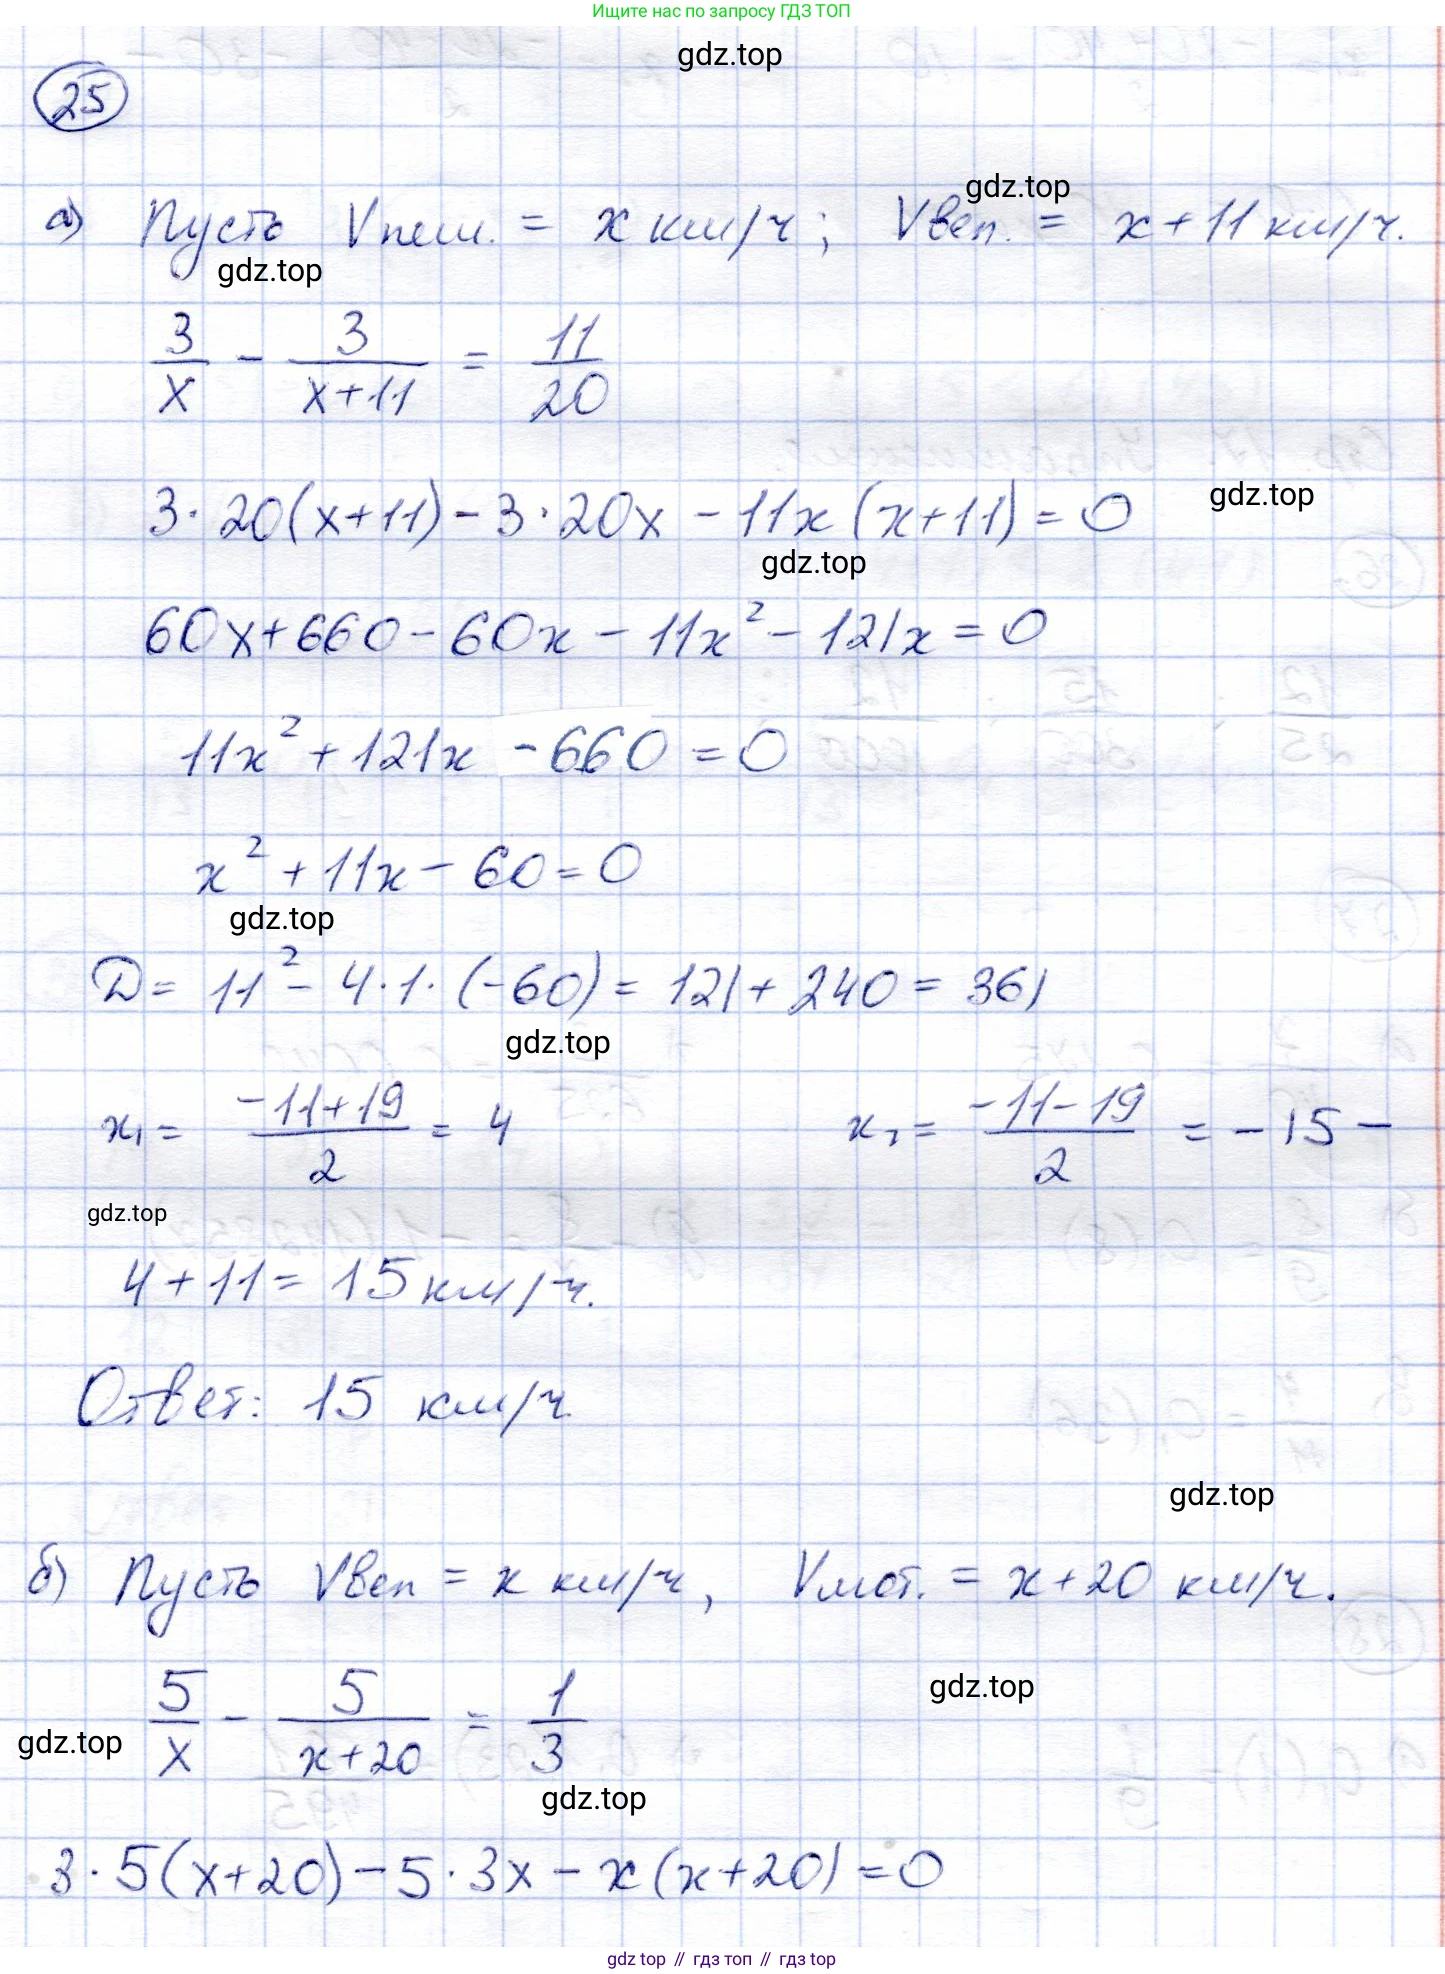 Ищите нас по запросу ГДЗ ТОП
gdz.top
25
gdz.top
а) Пусть Vпеш. = x км/ч; Vвел. = x + 11 км/ч.
gdz.top
3/x - 3/(x+11) = 11/20
3 · 20(x+11) - 3 · 20x - 11x(x+11) = 0
gdz.top
gdz.top
60x + 660 - 60x - 11x² - 121x = 0
11x² + 121x - 660 = 0
x² + 11x - 60 = 0
gdz.top
D = 11² - 4 · 1 · (-60) = 121 + 240 = 361
gdz.top
x₁ = (-11+19)/2 = 4 x₂ = (-11-19)/2 = -15 -
gdz.top
4 + 11 = 15 км/ч.
Ответ: 15 км/ч
gdz.top
б) Пусть Vвел = x км/ч, Vмот. = x + 20 км/ч.
gdz.top
5/x - 5/(x+20) = 1/3
gdz.top
gdz.top
3 · 5(x+20) - 5 · 3x - x(x+20) = 0
gdz top // гдз топ // гдз top